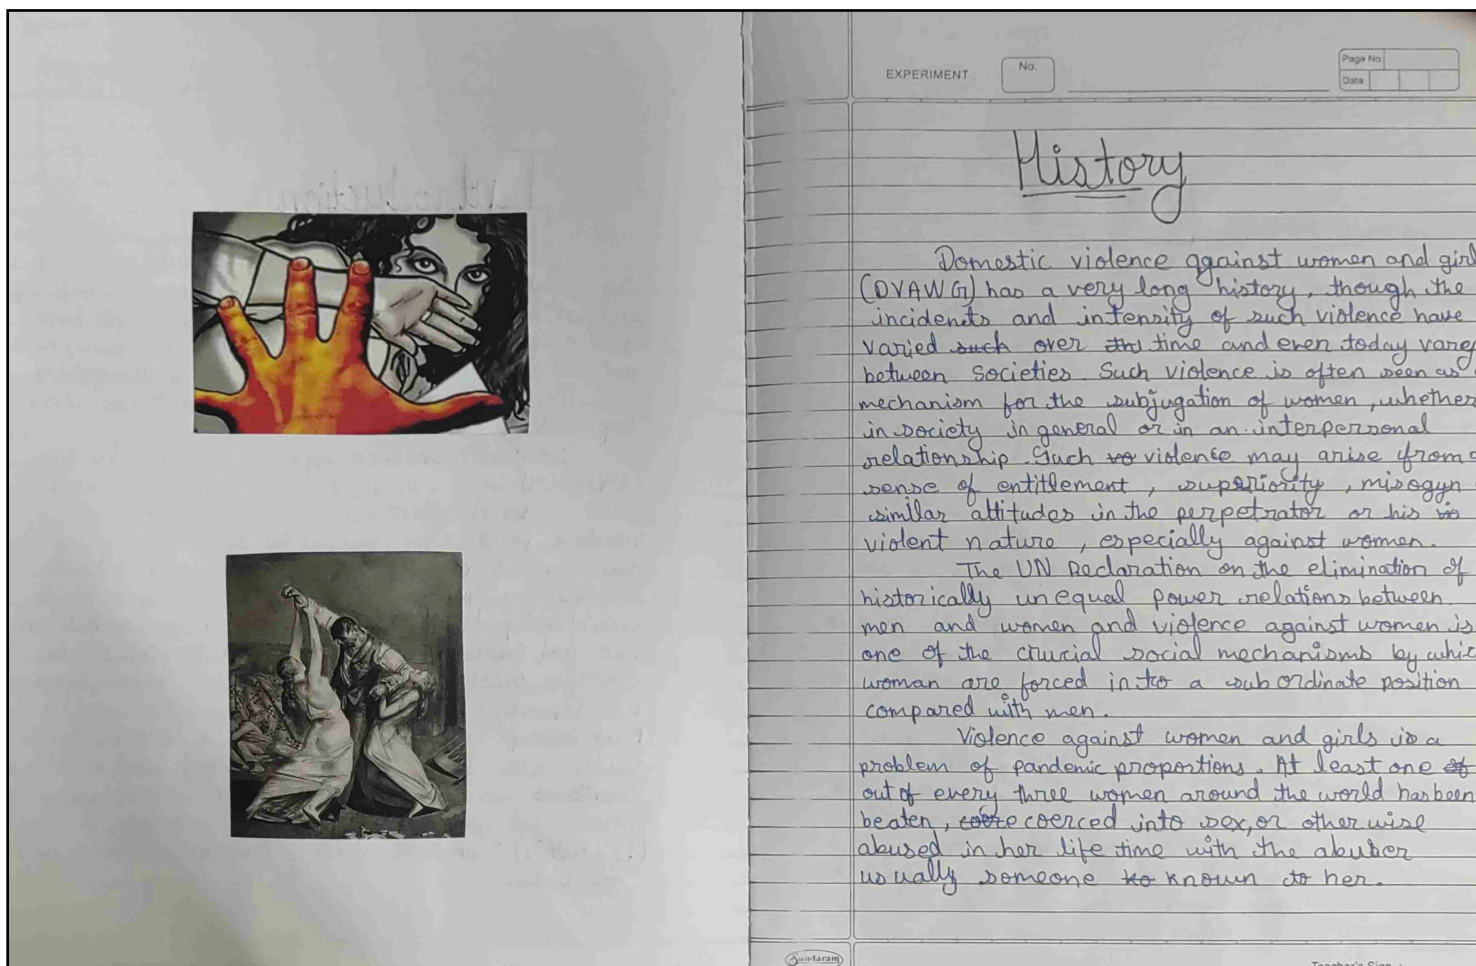 Introduction
EXPERIMENT :
No.
Page No.
Date
History
Domestic violence against women and girl
(DVAWG) has a very long history, though the
incidents and intensity of such violence have
varied such over time and even today varey
between societies. Such violence is often seen as
mechanism for the subjugation of women, whether
in society in general or in an interpersonal
relationship. Such vo violence may arise from a
sense of entitlement, superiority, misogyn
similar attitudes in the perpetrator or his
violent nature, especially against women.
The UN Declaration on the elimination of
historically unequal power relations between
men and women and violence against women is
one of the crucial social mechanisms by whic
woman are forced in to a sub ordinate position
compared with men.
Violence against women and girls is a
problem of pandenic proportions. At least one of
out of every three women around the world has been
beaten, coerced into sex, or other wise
abused in her life time with the abuber
usually someone ko known to her.
Sundaram
Teacher's Sign :